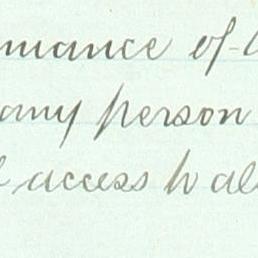 mance of
any person
access to al